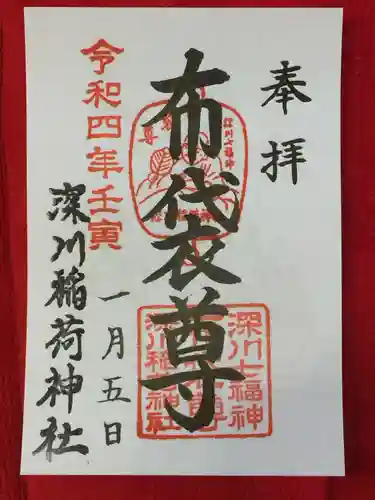 奉拝
布袋尊
深川七福神
布袋尊
深川稲荷神社
深川七福神
令和四年壬寅
一月五日
深川稲荷神社